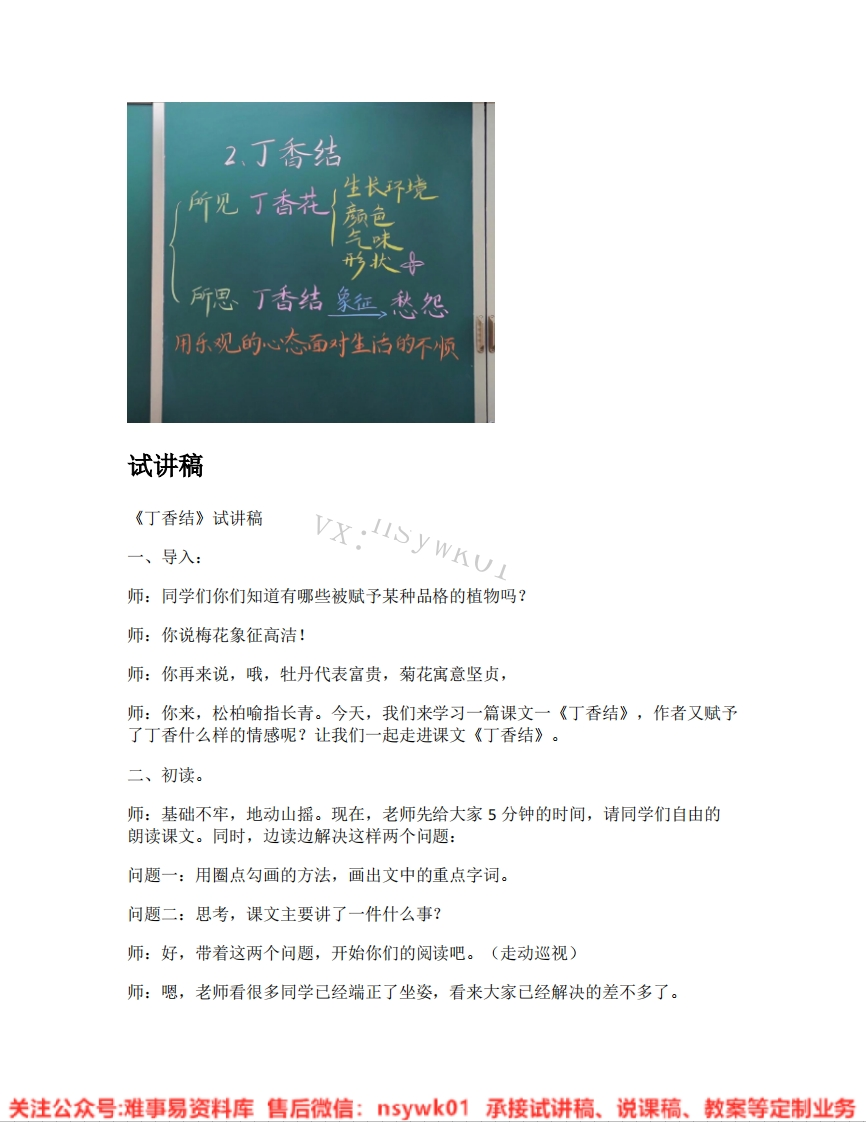 2、丁香结
所见 丁香花 生长环境
颜色
气味
形状
所思 丁香结 象征 愁怨
用乐观的心态面对生活的不顺
试讲稿
《丁香结》试讲稿
VX:nsywk01
一、导入：
师：同学们你们知道有哪些被赋予某种品格的植物吗？
师：你说梅花象征高洁！
师：你再来说，哦，牡丹代表富贵，菊花寓意坚贞，
师：你来，松柏喻指长青。今天，我们来学习一篇课文一《丁香结》，作者又赋予
了丁香什么样的情感呢？让我们一起走进课文《丁香结》。
二、初读。
师：基础不牢，地动山摇。现在，老师先给大家 5 分钟的时间，请同学们自由的
朗读课文。同时，边读边解决这样两个问题：
问题一：用圈点勾画的方法，画出文中的重点字词。
问题二：思考，课文主要讲了一件什么事？
师：好，带着这两个问题，开始你们的阅读吧。（走动巡视）
师：嗯，老师看很多同学已经端正了坐姿，看来大家已经解决的差不多了。
关注公众号:难事易资料库 售后微信：nsywk01 承接试讲稿、说课稿、教案等定制业务